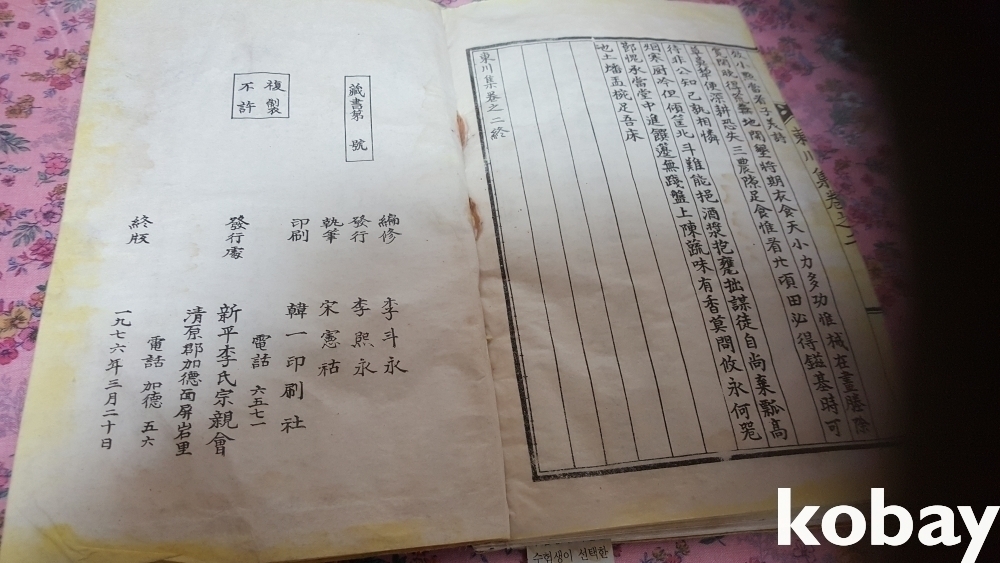 東川集卷之二
小 當看子 詩
地開墾將期衣食天小力多功惟械在
深耕恐失三農隙足食惟看 頃田必得鎡基時可
待非公知己孰相憐
烟寒厨冷但傾筐北斗難能挹酒漿抱甕拙謀徒自尚棄瓢高
愧永當堂中進饌 無 盤上陳蔬味有香莫問攸永何
地土 盂椀足吾床
東川集卷之二終
藏書第 號
複製
不許
編修 李斗永
發行 李熙永
執筆 宋憲祜
印刷 韓一印刷社
電話 六五七一
發行處 新平李氏宗親會
淸原郡加德面屛岩里
電話 加德 五六
終版 一九七六年三月二十日
수험생이 선택한
kobay